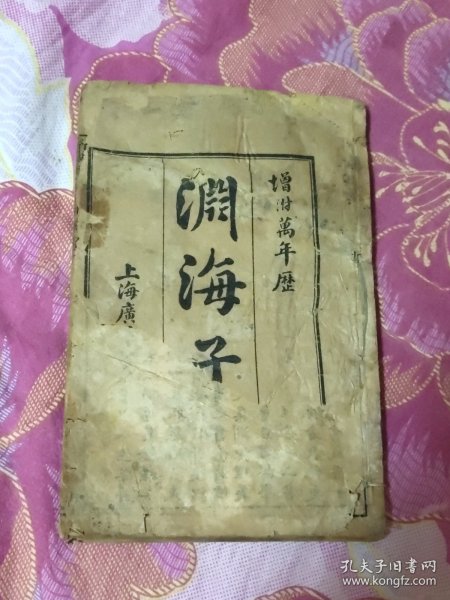 增附萬年歷
淵海子
上海廣
孔夫子旧书网
www.kongfz.com